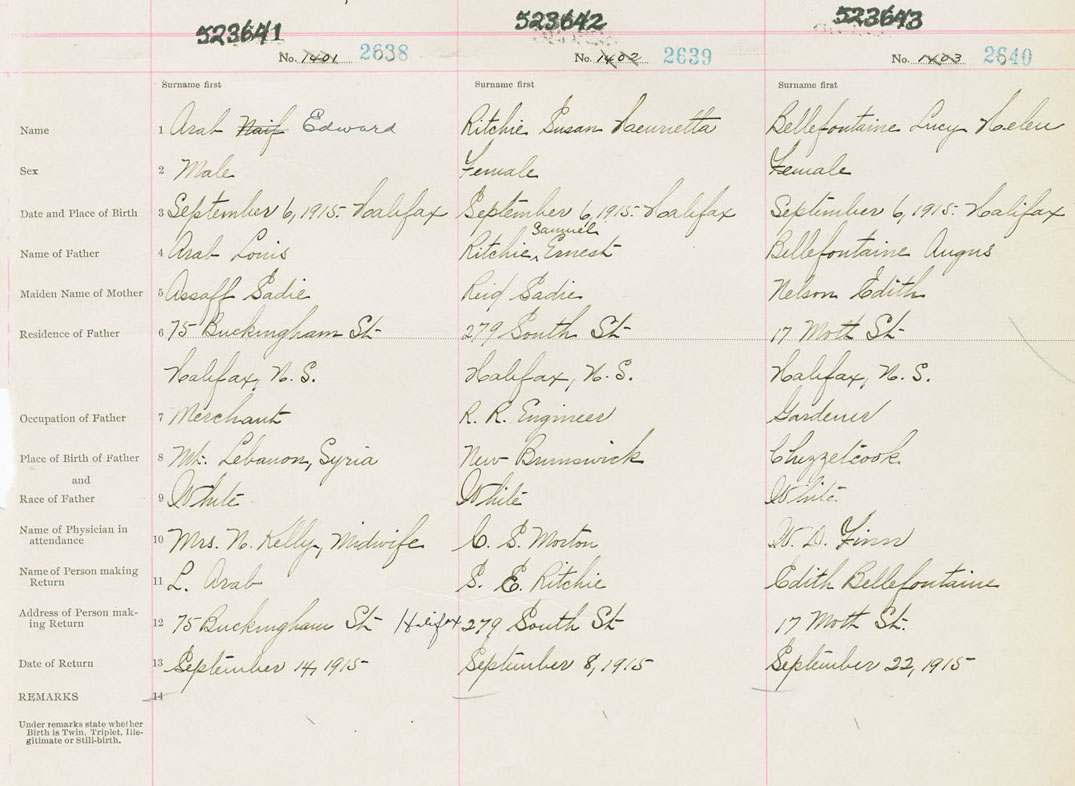 523641 523642 523643
No. 1401 2638 No. 1402 2639 No. 1403 2640
Surname first Surname first Surname first
Name 1 Arab Naif Edward Ritchie Susan Henrietta Bellefontaine Lucy Helen
Sex 2 Male Female Female
Date and Place of Birth 3 September 6, 1915. Halifax September 6, 1915. Halifax September 6, 1915. Halifax
Samuel
Name of Father 4 Arab Louis Ritchie, Ernest Bellefontaine Angus
Maiden Name of Mother 5 Assaff Sadie Reid Sadie Nelson Edith
Residence of Father 6 75 Buckingham St 279 South St 17 Mott St
Halifax, N. S. Halifax, N. S. Halifax, N. S.
Occupation of Father 7 Merchant R. R. Engineer Gardener
Place of Birth of Father 8 Mt. Lebanon, Syria New Brunswick Chezzetcook
and
Race of Father 9 White White White
Name of Physician in
attendance 10 Mrs. N. Kelly, Midwife C. S. Morton W. D. Finn
Name of Person making
Return 11 L. Arab S. E. Ritchie Edith Bellefontaine
Address of Person mak-
ing Return 12 75 Buckingham St Halifax 279 South St 17 Mott St.
Date of Return 13 September 14, 1915 September 8, 1915 September 22, 1915
REMARKS 14
Under remarks state whether
Birth is Twin, Triplet, Ille-
gitimate or Still-birth.